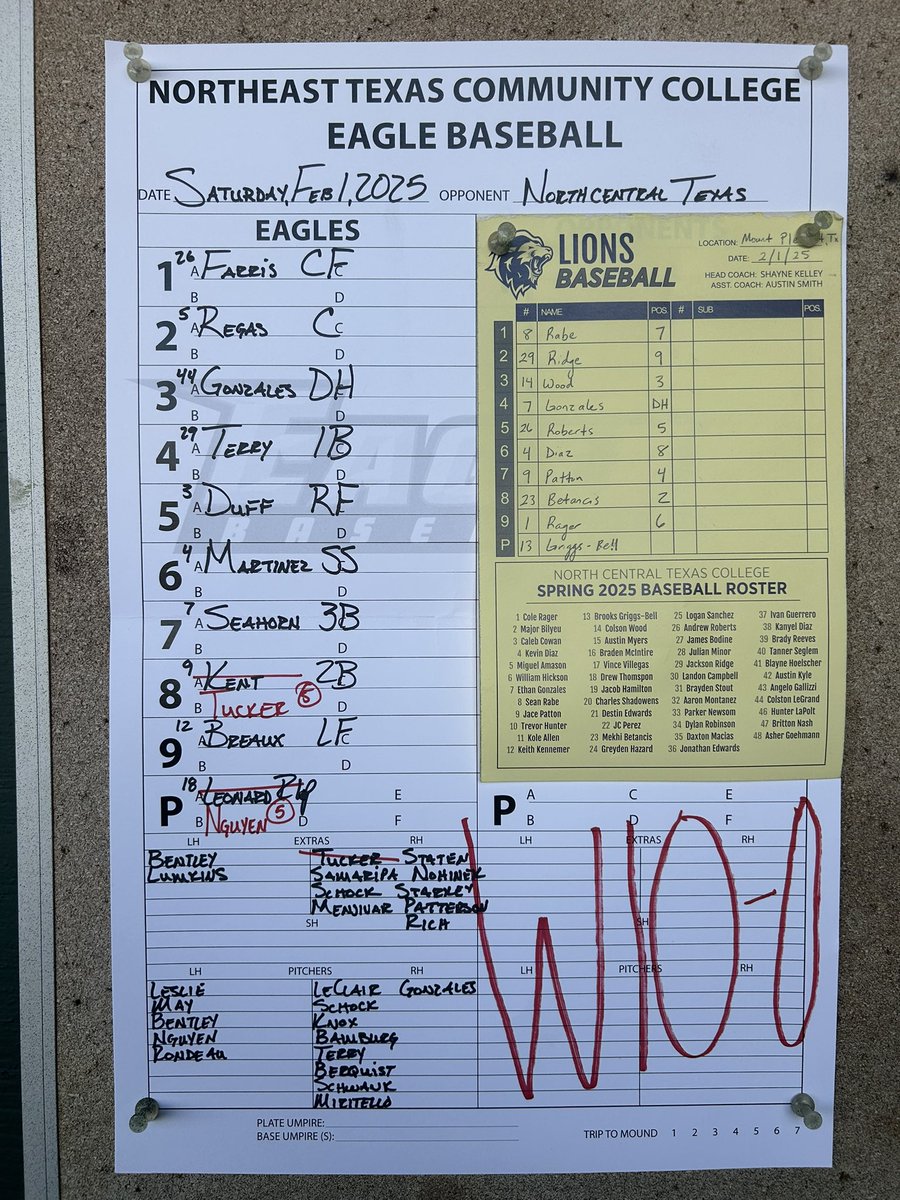 NORTHEAST TEXAS COMMUNITY COLLEGE
EAGLE BASEBALL
DATE SATURDAY, FEB 1, 2025 OPPONENT NORTH CENTRAL TEXAS
EAGLES
1 26 A FARRIS CF C
B D
2 5 A REGAS C C
B D
3 44 A GONZALES DH
B D
4 29 A TERRY 1B C
B D
5 3 A DUFF RF
B D
6 4 A MARTINEZ SS
B D
7 7 A SEAHORN 3B
B D
8 9 A KENT 2B
B TUCKER 8 D
9 12 A BREAUX LF C
B D
P 18 A LEONARD RHP E
B NGUYEN 5 D F
LH EXTRAS RH
BENTLEY TUCKER STATEN
LUMKINS SAMARIPA NOHINEK
SCHOCK STARKEY
MENJIVAR PATTERSON
SH RICH
LH PITCHERS RH
LESLIE LECLAIR GONZALES
MAY SCHOCK
BENTLEY KNOX
NGUYEN BAUMBURG
RONDEAU TERRY
BERQUIST
SCHWAUK
MIRITELLO
LIONS
BASEBALL
LOCATION: Mount Tx
DATE: 2/1/25
HEAD COACH: SHAYNE KELLEY
ASST. COACH: AUSTIN SMITH
# NAME POS. # SUB POS.
1 8 Rabe 7
2 29 Ridge 9
3 14 Wood 3
4 7 Gonzales DH
5 26 Roberts 5
6 4 Diaz 8
7 9 Patton 4
8 23 Betancis 2
9 1 Rager 6
P 13 Griggs-Bell
NORTH CENTRAL TEXAS COLLEGE
SPRING 2025 BASEBALL ROSTER
1 Cole Rager
2 Major Bilyeu
3 Caleb Cowan
4 Kevin Diaz
5 Miguel Amason
6 William Hickson
7 Ethan Gonzales
8 Sean Rabe
9 Jace Patton
10 Trevor Hunter
11 Kole Allen
12 Keith Kennemer
13 Brooks Griggs-Bell
14 Colson Wood
15 Austin Myers
16 Braden McIntire
17 Vince Villegas
18 Drew Thomspon
19 Jacob Hamilton
20 Charles Shadowens
21 Destin Edwards
22 JC Perez
23 Mekhi Betancis
24 Greyden Hazard
25 Logan Sanchez
26 Andrew Roberts
27 James Bodine
28 Julian Minor
29 Jackson Ridge
30 Landon Campbell
31 Brayden Stout
32 Aaron Montanez
33 Parker Newsom
34 Dylan Robinson
35 Daxton Macias
36 Jonathan Edwards
37 Ivan Guerrero
38 Kanyel Diaz
39 Brady Reeves
40 Tanner Seglem
41 Blayne Hoelscher
42 Austin Kyle
43 Angelo Gallizzi
44 Colston LeGrand
46 Hunter LaPolt
47 Britton Nash
48 Asher Goehmann
P A C E
B D F
LH EXTRAS RH
SH
LH PITCHERS RH
W 10-0
PLATE UMPIRE:
BASE UMPIRE (S):
TRIP TO MOUND 1 2 3 4 5 6 7